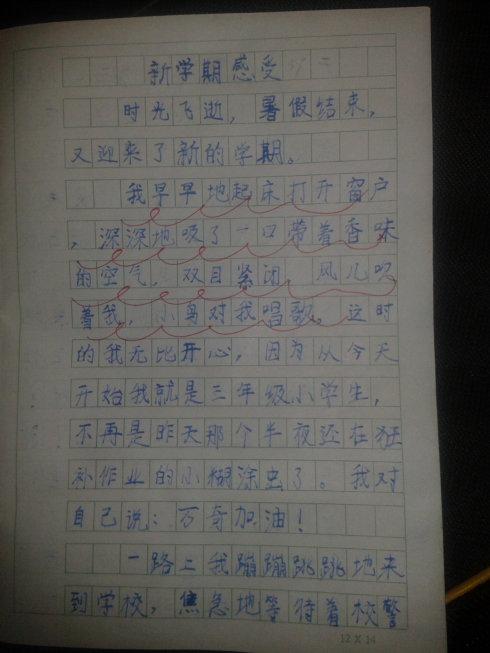 新学期感受
时光飞逝，暑假结束，
又迎来了新的学期。
我早早地起床打开窗户
，深深地吸了一口带着香味
的空气，双目紧闭，风儿吹
着我，小鸟对我唱歌。这时
的我无比开心，因为从今天
开始我就是三年级小学生，
不再是昨天那个半夜还在狂
补作业的小糊涂虫了。我对
自己说：万奇加油！
一路上我蹦蹦跳跳地来
到学校，焦急地等待着校警
12×14